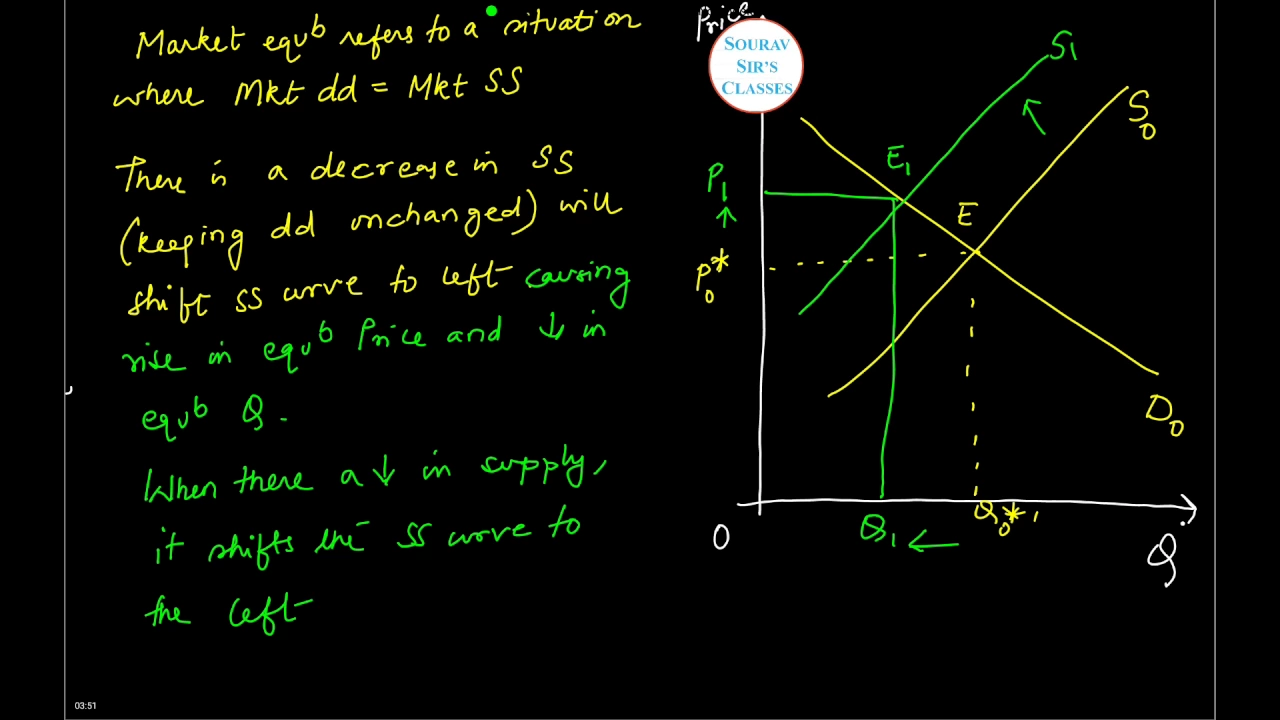 Market equb refers to a situation
where Mkt dd = Mkt SS
There is a decrease in SS
(keeping dd unchanged) will
shift SS curve to left causing
rise in equb Price and ↓ in
equb Q.
When there a ↓ in supply,
it shifts the SS curve to
the left
Price
SOURAV
SIR'S
CLASSES
S1
S0
E1
P1
↑
E
P0*
D0
O
Q1 ←
Q0*
Q
03:51